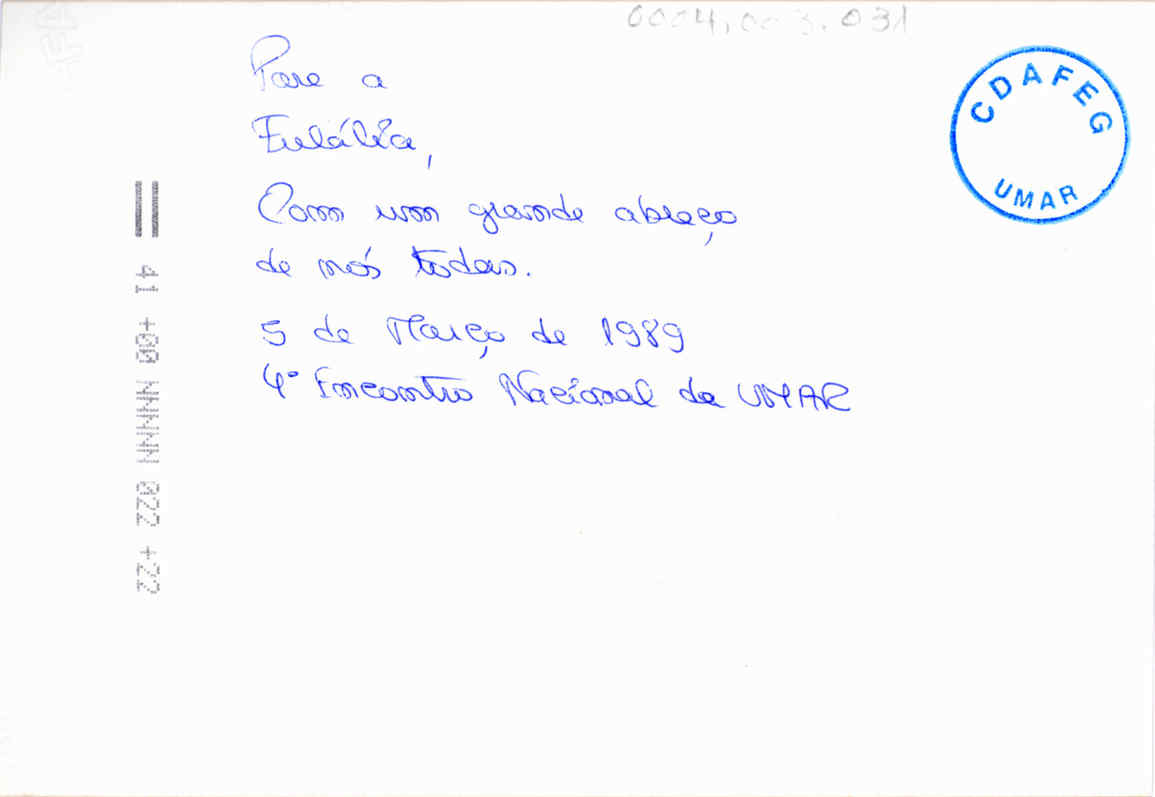 0004,003.031
Para a
Eulália,
Com um grande abraço
de nós todas.
5 de Março de 1989
4º Encontro Nacional da UMAR
CDAFEG
UMAR
41 +00 NNNNN 022 +22